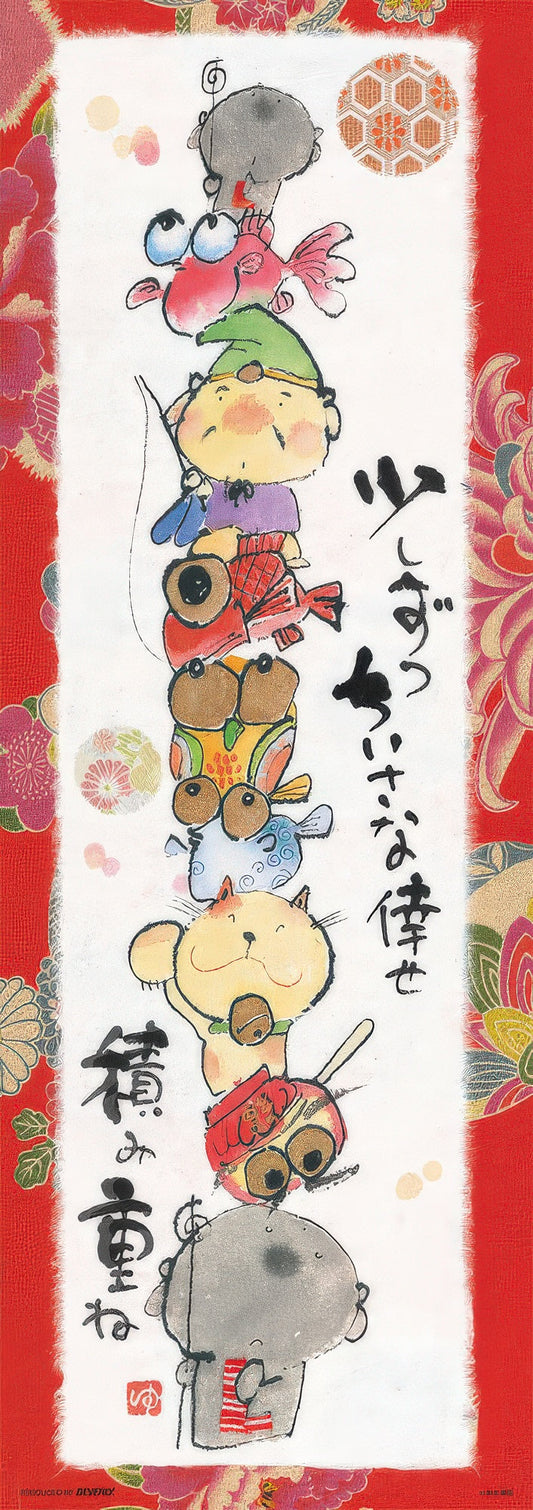 少しずつ
ちいさな倖せ
積み
重ね
ゆ